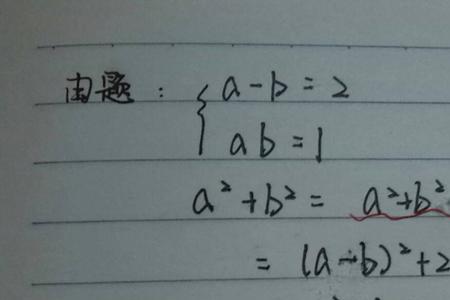 由题: { a-b=2
ab=1
a²+b²= a²+b²
=(a-b)²+2